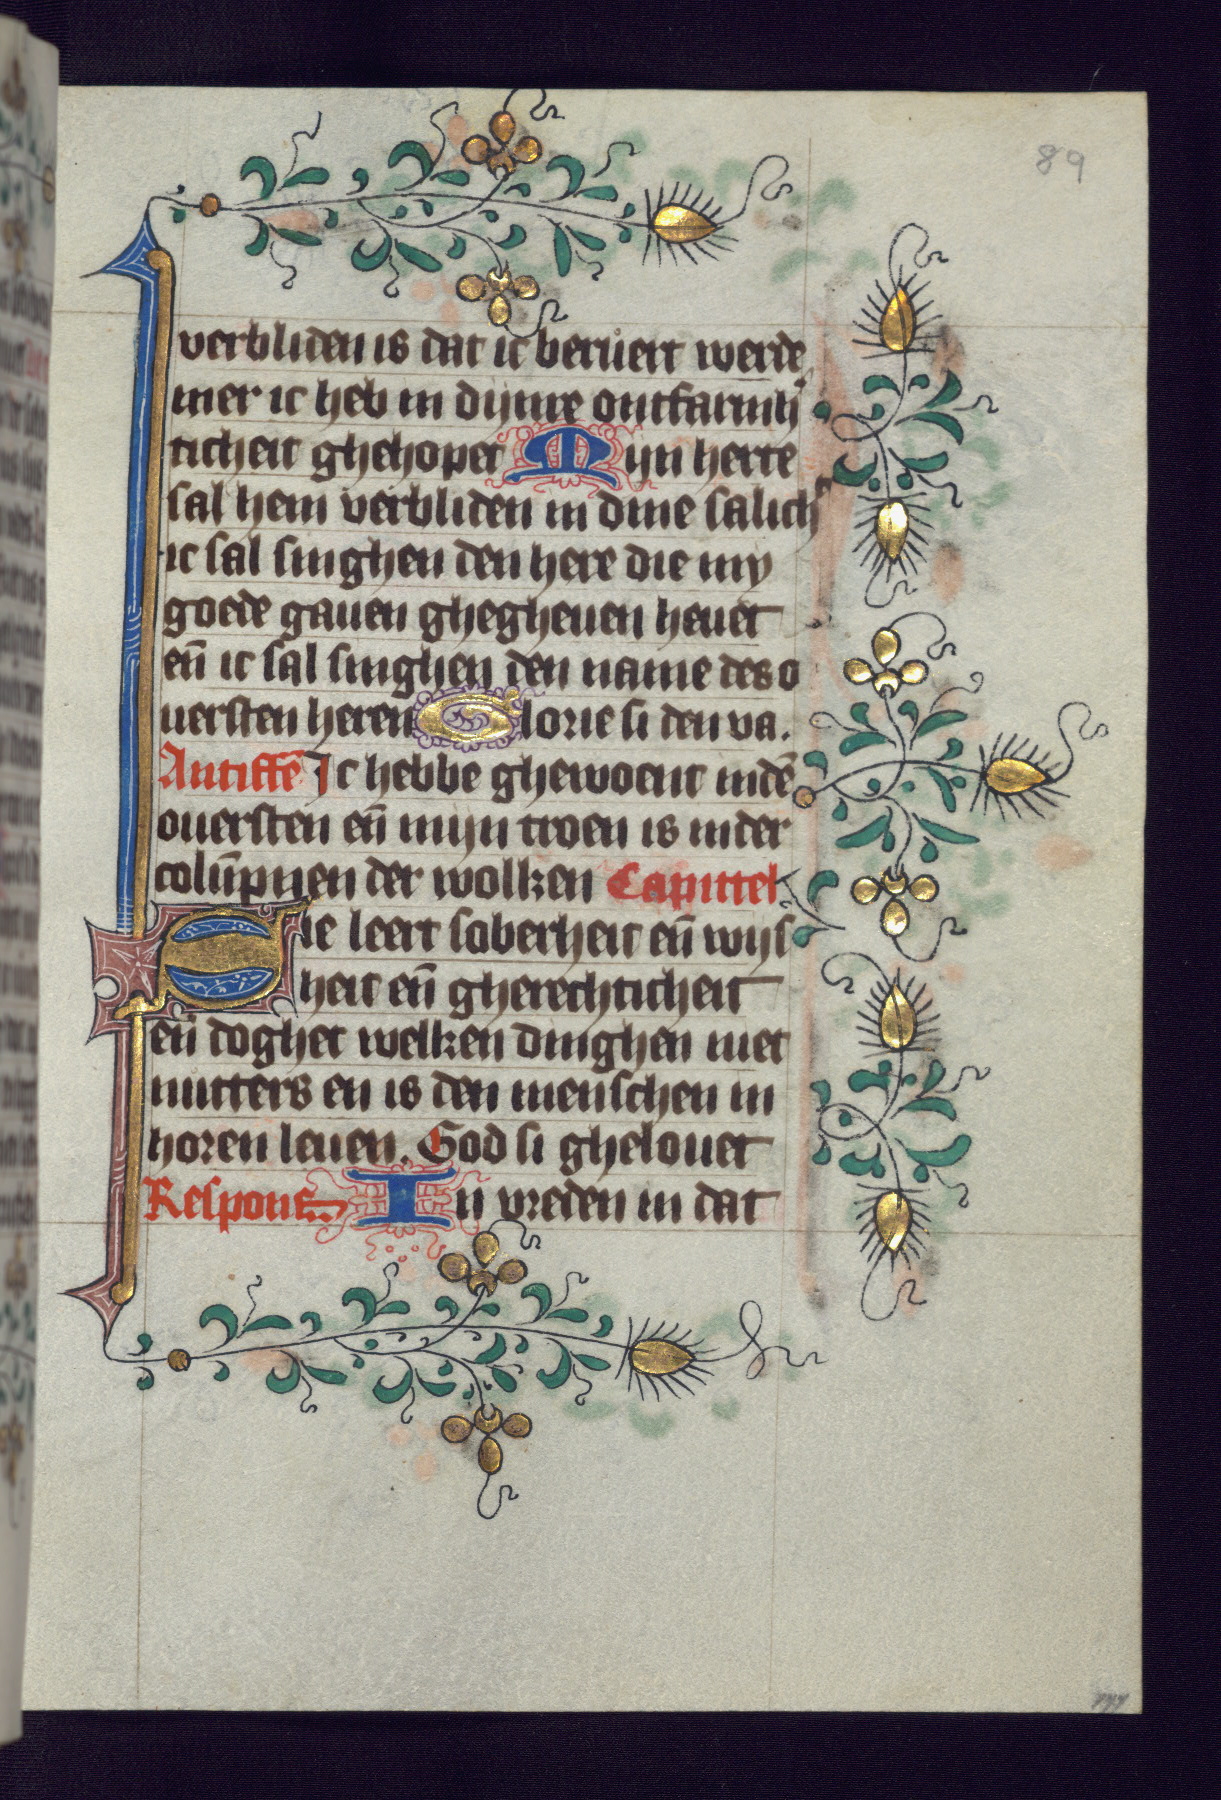 89
verbliden is dat ic beruert werde
mer ic heb in dijnre ontfarmh
ticheit ghehopet Mijn herte
sal hem verbliden in dine salich
ic sal singhen den here die my
goede gauen ghegheuen heuet
en̄ ic sal singhen den name des o
uersten heren Glorie si den va.
Antiffē Ic hebbe ghewoent indē
ouersten en̄ mijn troen is in der
colūpnen der wolken Capittel
Sie leert soberheit en̄ wijs
heit en̄ gherechticheit
en̄ doghet welken dinghen niet
nutters en is den menschen in
horen leuen. God si ghelouet
Respons In vreden in dat